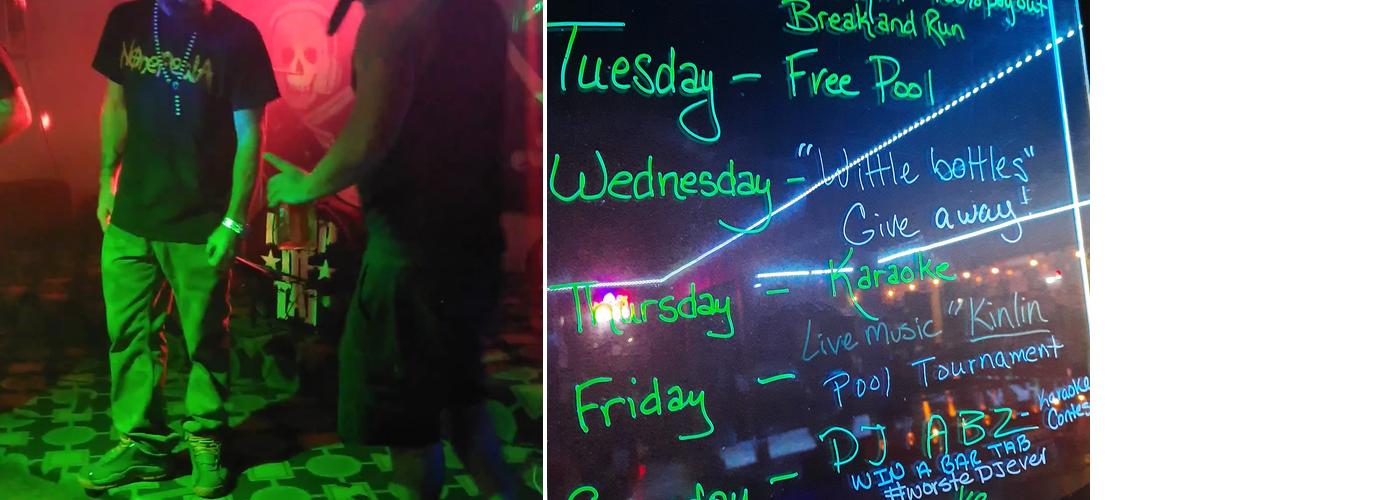 Break and Run
Tuesday - Free Pool
Wednesday - "Wittle bottles"
Give away!
Thursday - Karaoke
Live Music "Kinlin
Friday - Pool Tournament
DJ ABZ - Karaoke
Contes
WIN A BAR TAB
#WorsteDJever